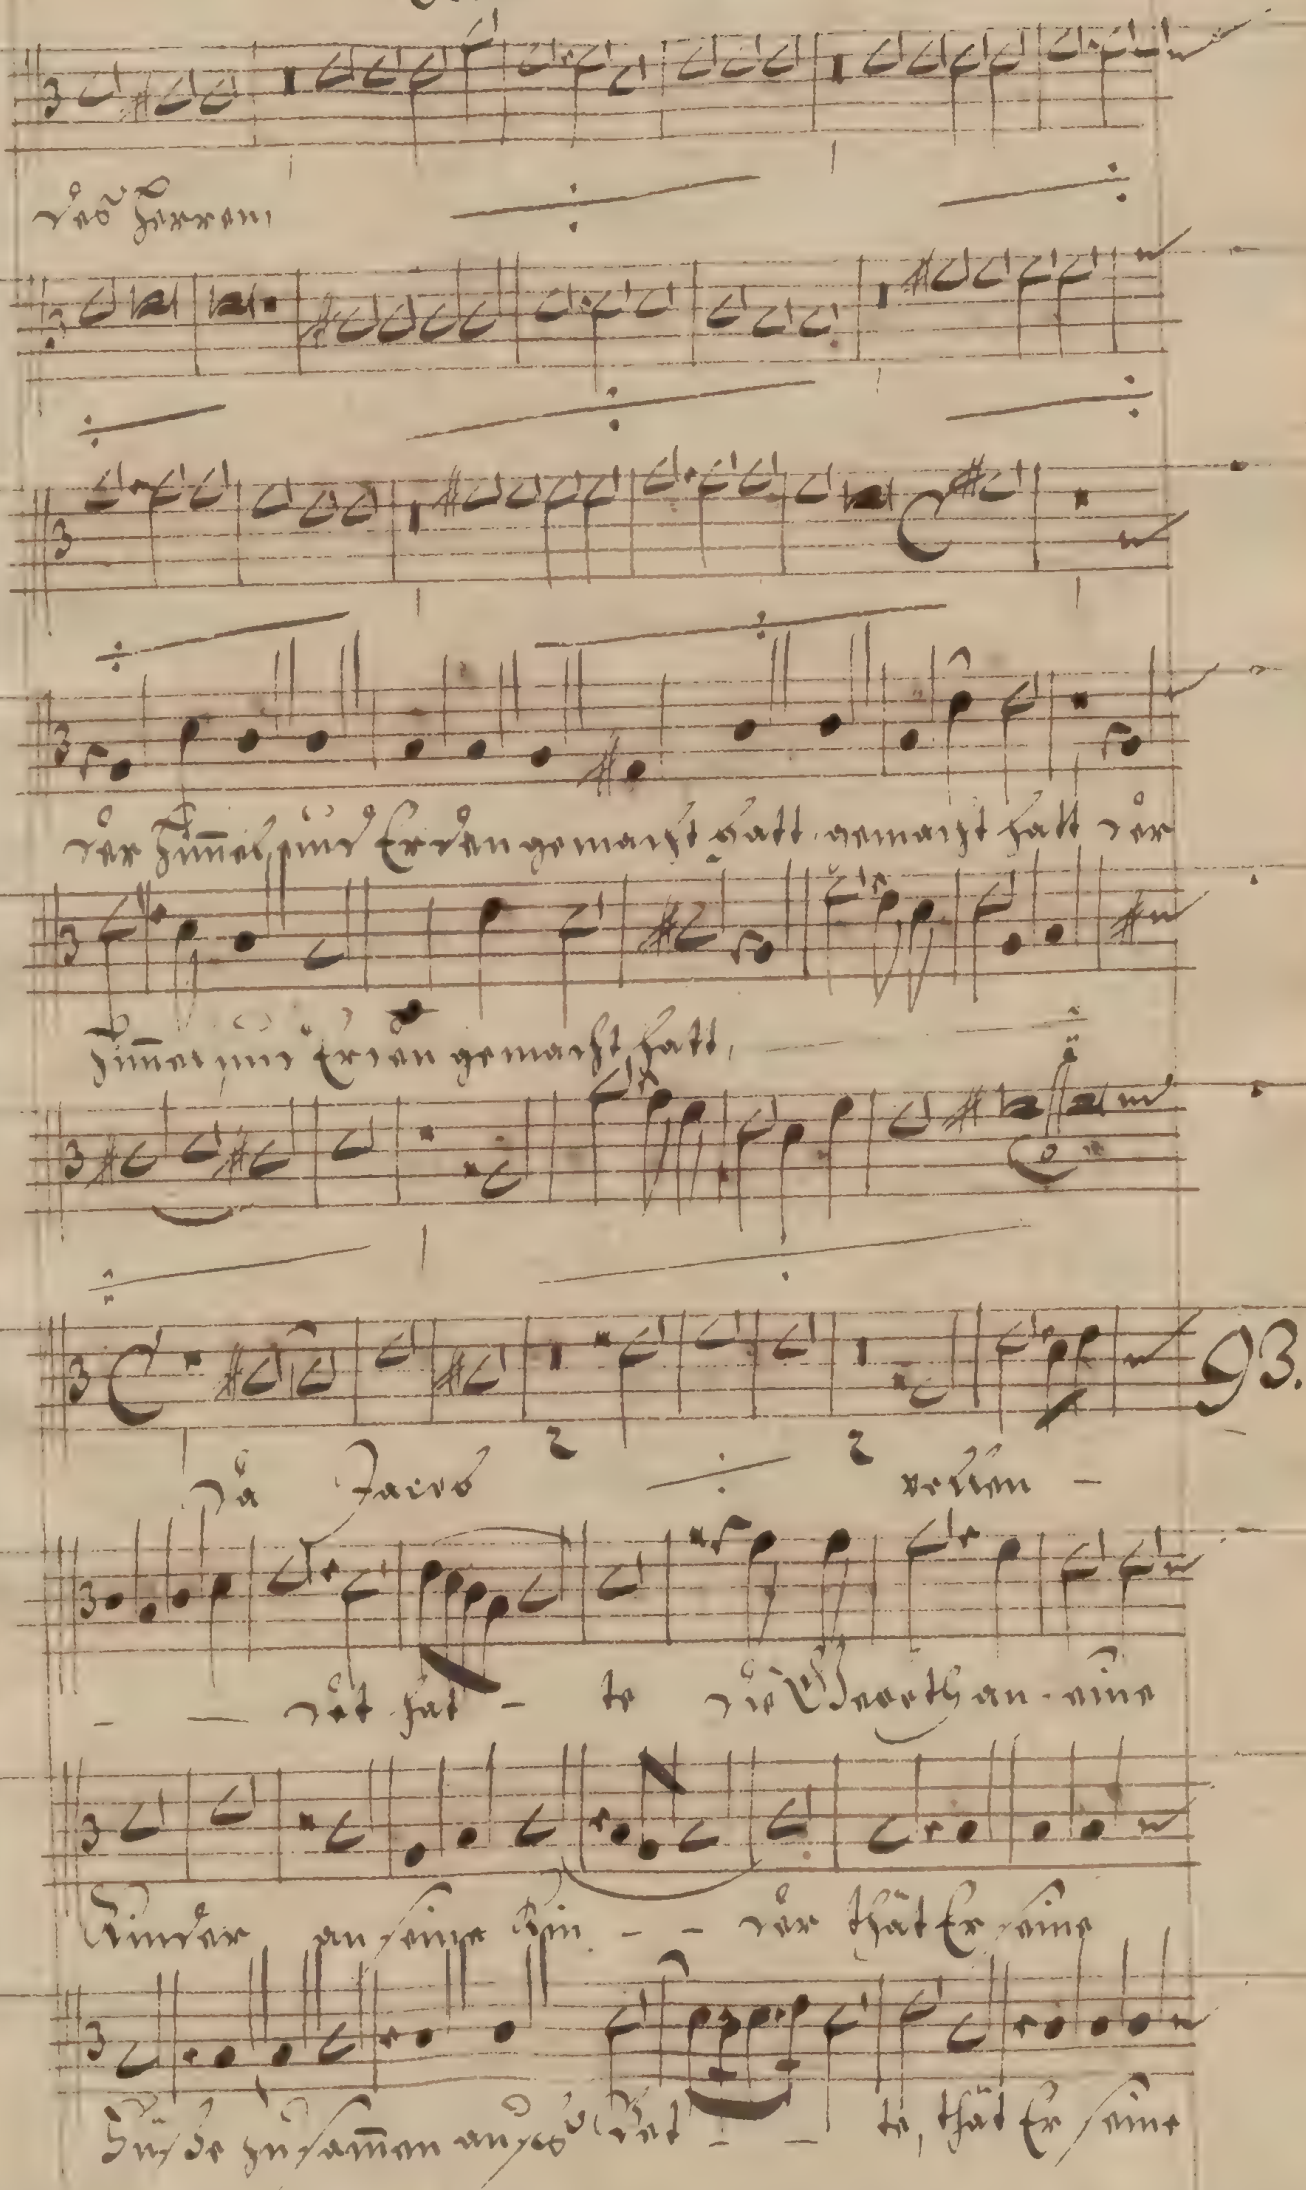 des Herren,
der Him̅el und Erden gemacht hatt gemacht hatt der
Him̅el und Erden gemacht hatt,
93.
2 2
Da Jacob vollen -
- - det hat - te die Geboth an seine
Kinder an seine Kin - - der thät Er seine
Füße zusam̅en auffs Bet - - te, thät Er seine